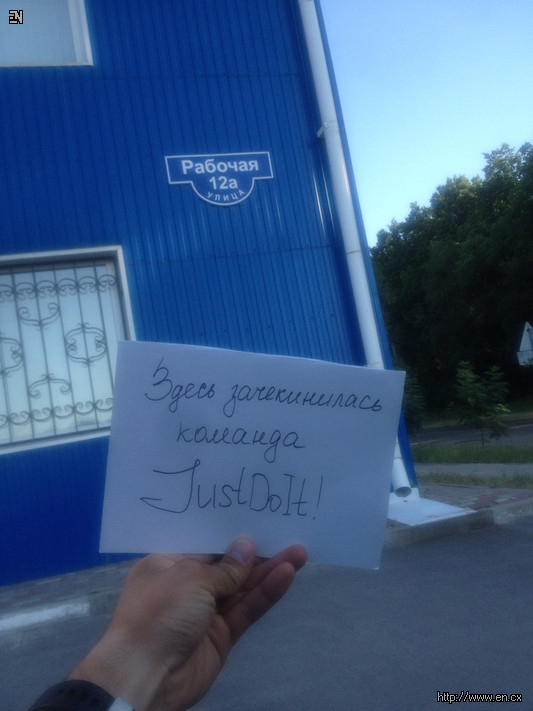 EN
Рабочая
12а
УЛИЦА
Здесь зачекинилась
команда
JustDoIt!
http://www.en.cx